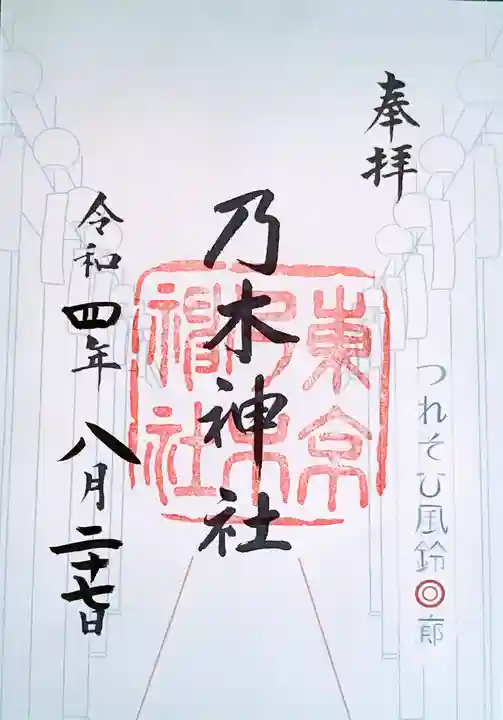 奉拝
つれそひ風鈴回廊
乃木神社
東京
乃木
神社
令和四年八月二十七日